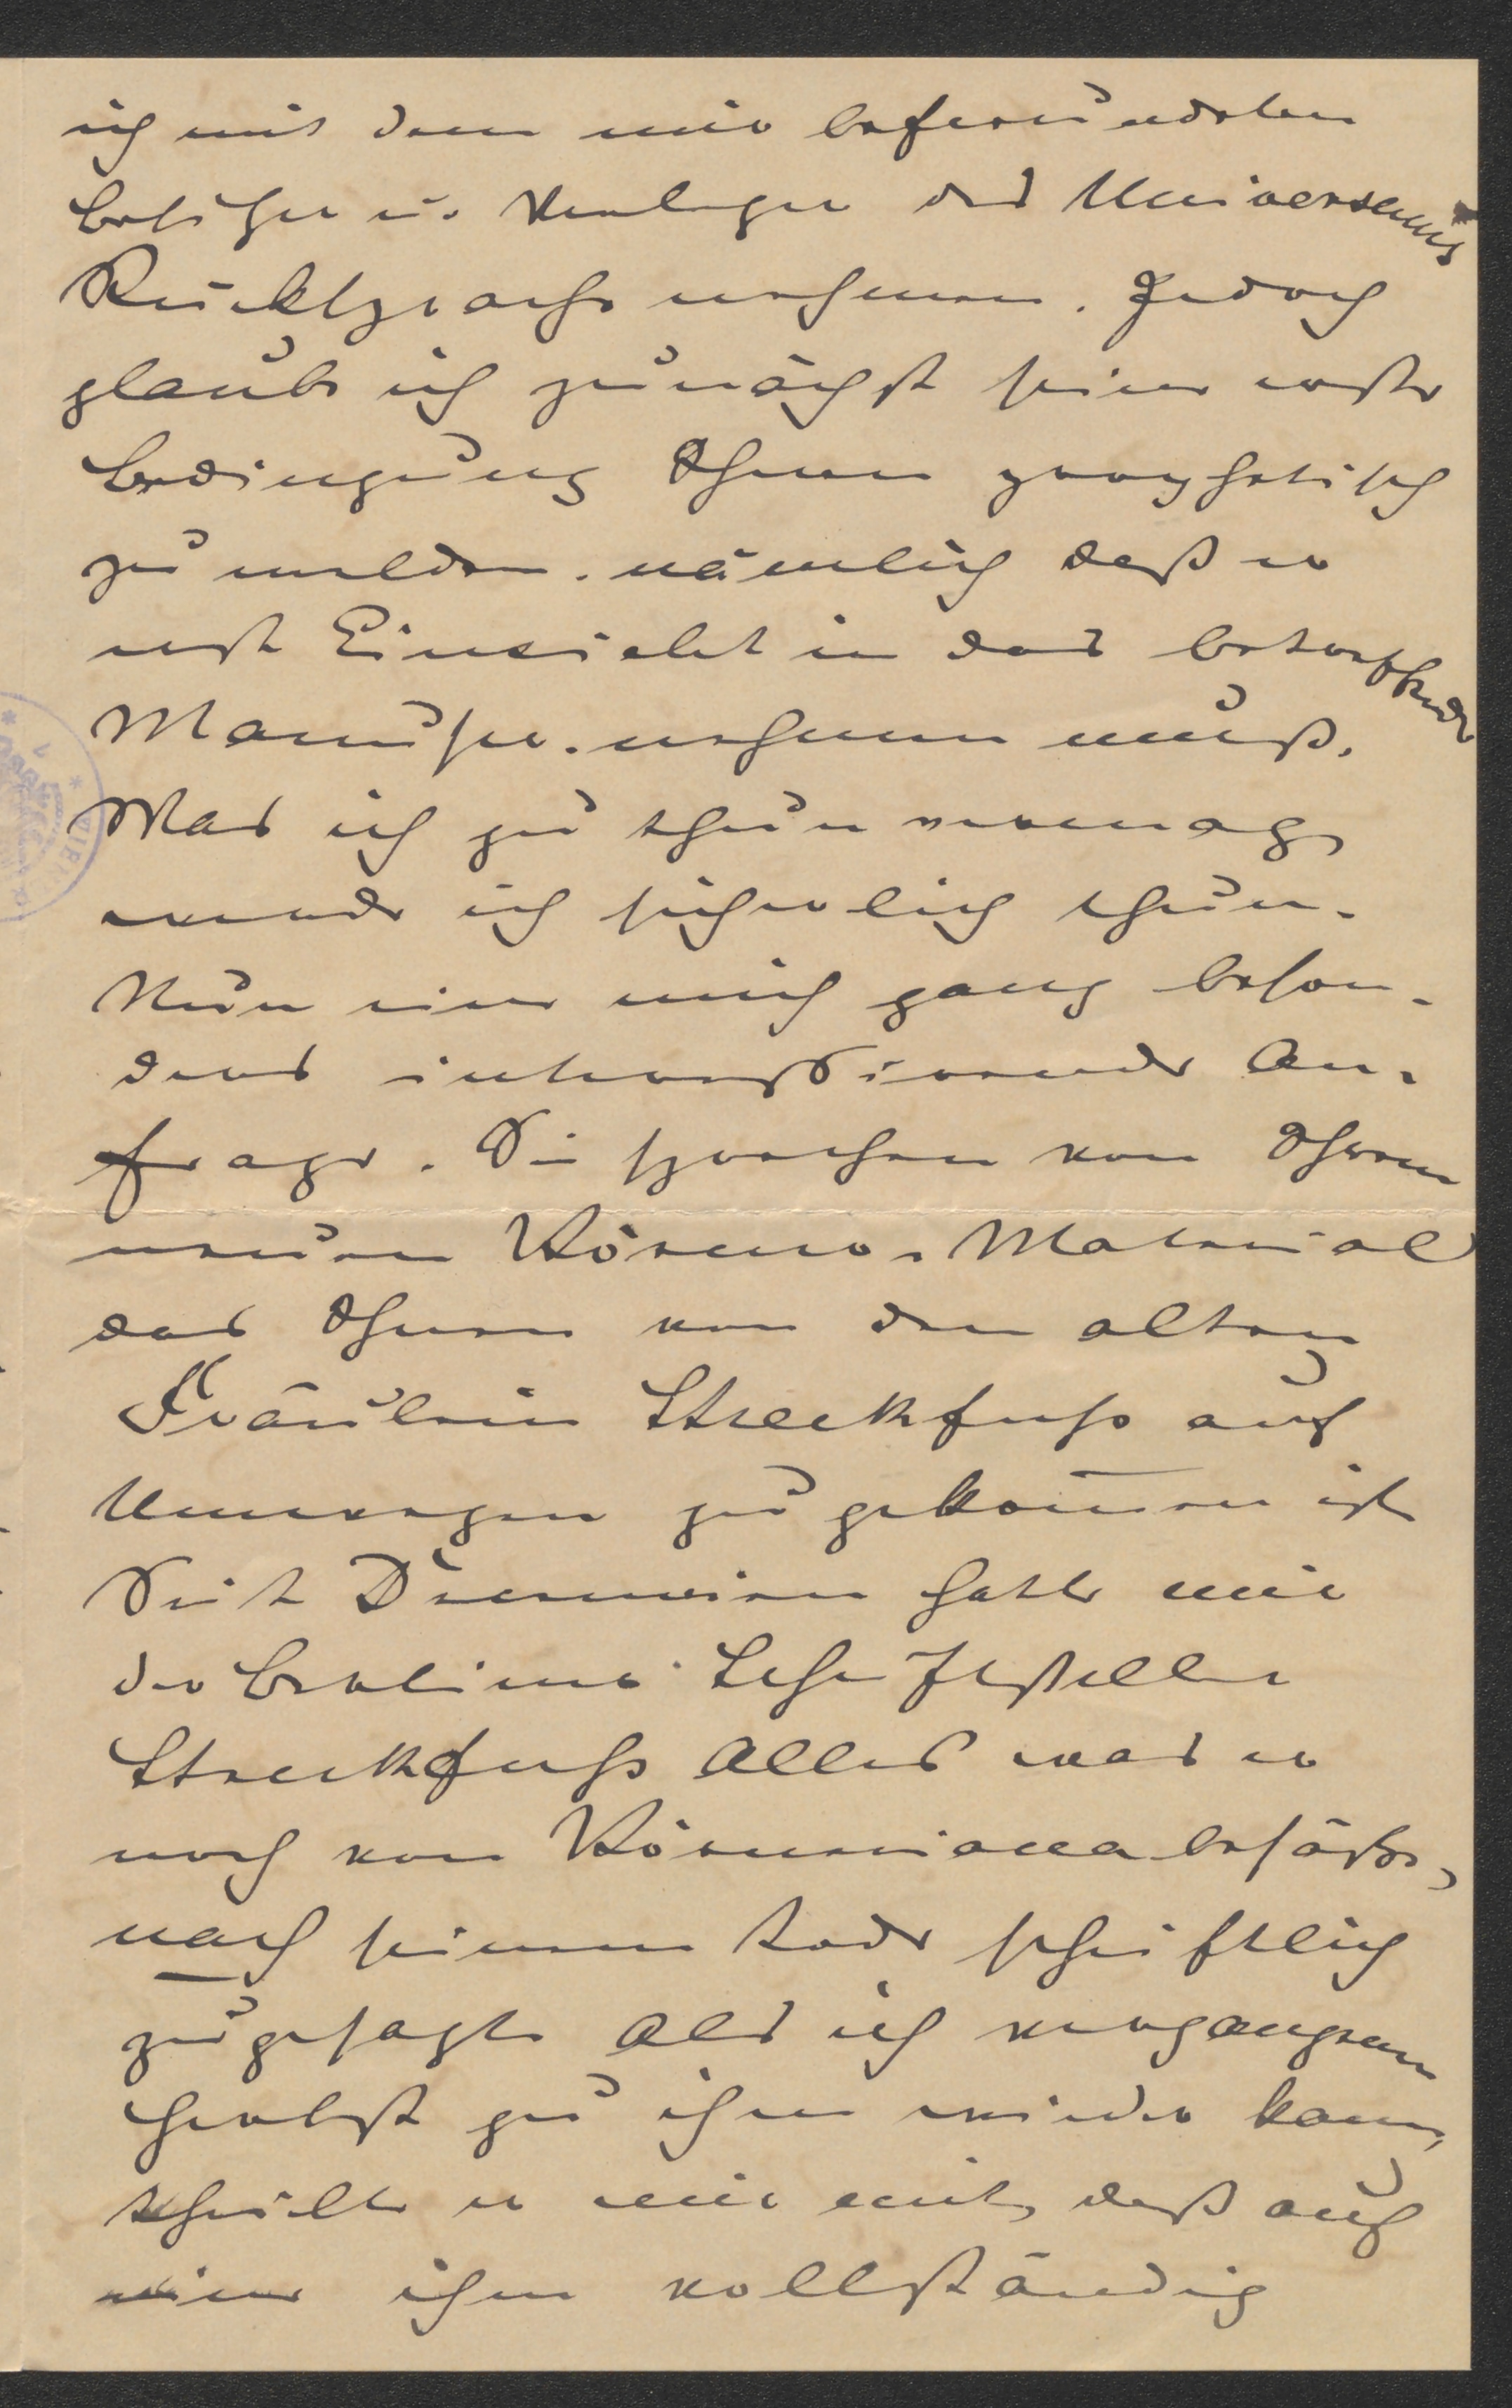 ich mit dem mir befreundeten
Besitzer u. Verleger des Universums
Rücksprache nehmen. Jedoch
glaube ich zunächst seine erste
Bedingung Ihnen prophetisch
zu melden. nämlich daß er
erst Einsicht in das betreffende
Manuscr. nehmen muß.
Was ich zu thun vermag,
werde ich sicherlich thun.
Nun eine mich ganz beson-
ders interessirende An-
frage. Sie sprechen von Ihrem
neuen Körner-Material
das Ihnen von dem alten
Fräulein Streckfuss auf
Umwegen zu gekommen ist
Seit Decennien hatte mir
der Berliner Schriftsteller
Streckfuss Alles was er
noch von Körneriana besäße,
nach seinem Tode schriftlich
zugesagt. Als ich vergangenen
Herbst zu ihm wieder kam,
theilte er mir mit, daß auf
eine ihm vollständig